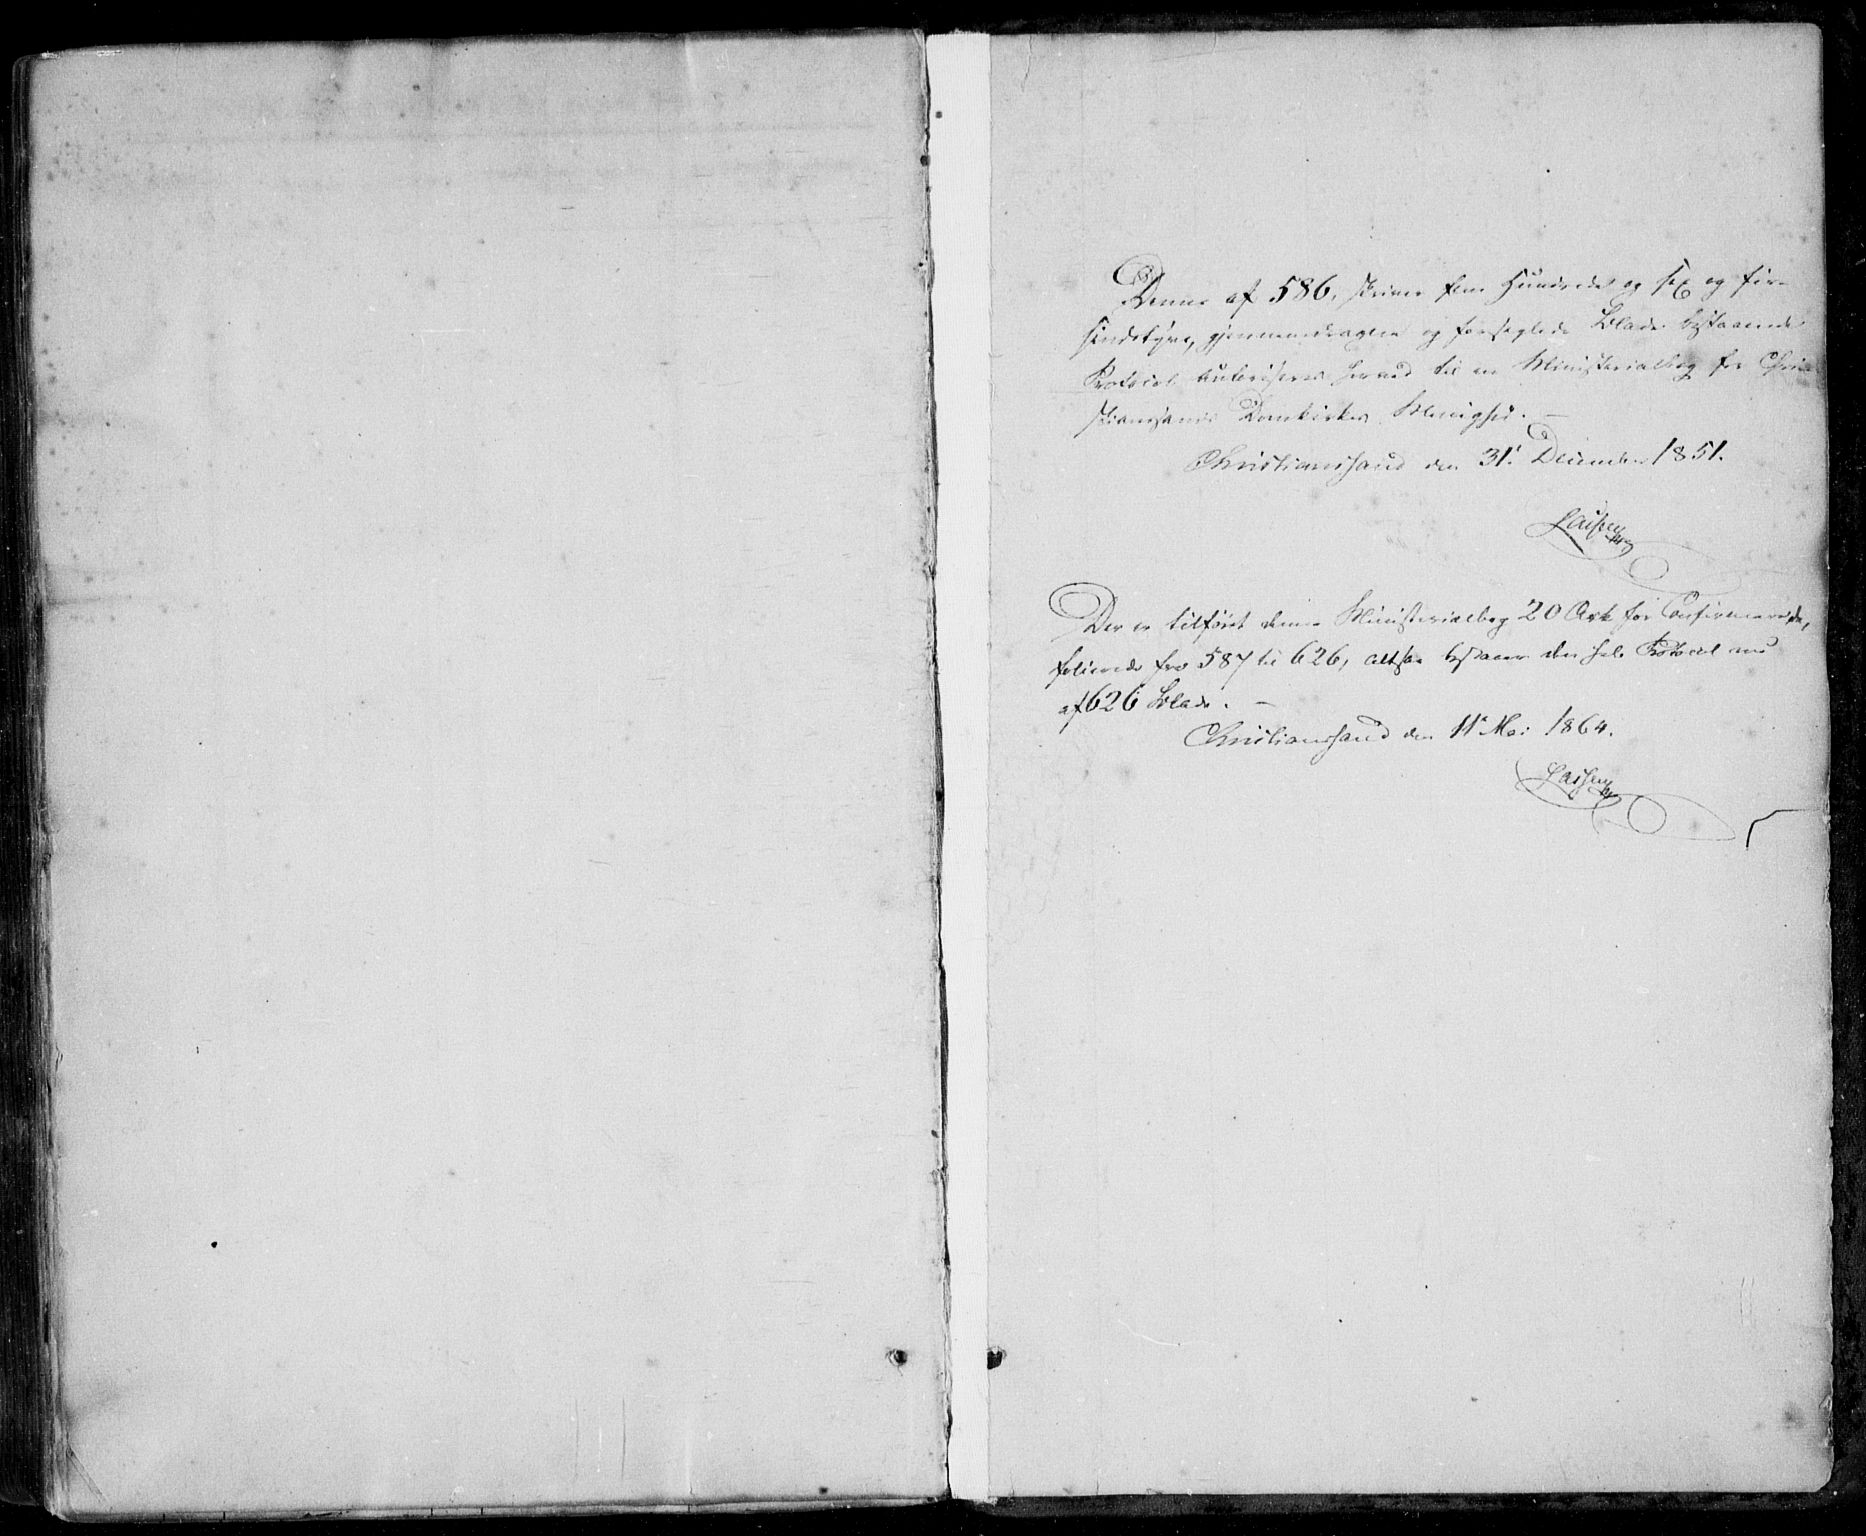 Denne af 586, skriver fem Hundrede og sex og fir-
sindstyve, gjennemdragne og forseglede Blade bestaaende
Protocol autoriseres herved til en Ministerialbog for Chri-
stianssands Domkirkes Menighed. —
Christianssand den 31' December 1851.
Lassen
Der er tilføiet denne Ministerialbog 20 Ark for Confirmerede,
folierede fra 587 til 626, altsaa bestaaer den hele Protocol nu
af 626 Blade. —
Christianssand den 11' Mai 1864.
Lassen